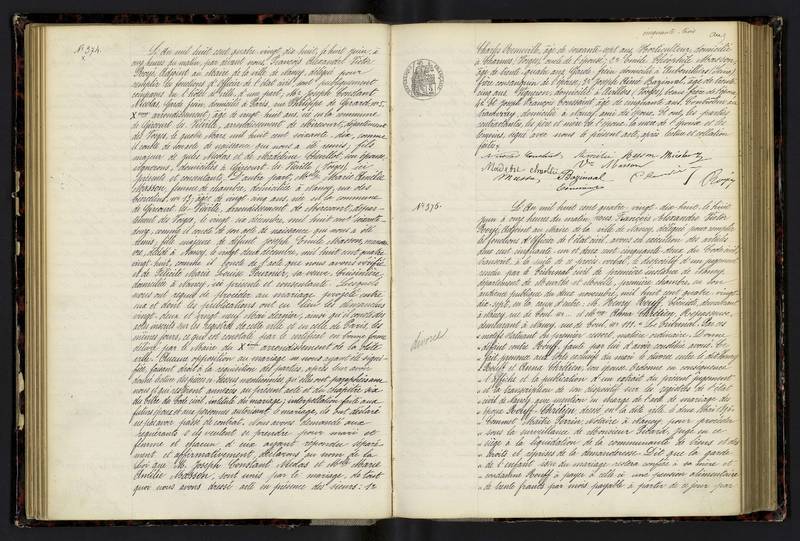 N° 374.
L'An mil huit cent quatre vingt dix huit, le huit juin, à
onze heures du matin, par devant nous, François Alexandre Victor
Adjoint au Maire de la ville de Nancy, délégué pour
remplir les fonctions d'Officier de l'état civil, ont publiquement
comparu en l'hôtel de Ville, d'une part, Mr Joseph Constant
Nicolas, Garde frein, domicilié à Paris, rue Philippe de Girard, n° 5,
Xme arrondissement, âgé de vingt huit ans, né en la commune
de Gircourt les Viéville, arrondissement de Mirecourt, département
des Vosges, le quatre Mars mil huit cent soixante dix, comme
il conste de son acte de naissance qui nous a été remis, fils
majeur de Jules Nicolas et de Madeleine son épouse,
vignerons, domiciliés à Gircourt les Viéville (Vosges), ici
présents et consentants. Et d'autre part, Melle Marie Amélie
Masson, femme de chambre, domiciliée à Nancy, rue des
n° 13, âgée de vingt ans, née en la commune
de Gircourt les Viéville, arrondissement de Mirecourt, dépar-
tement des Vosges, le vingt six décembre, mil huit cent soixante
comme il conste de son acte de naissance qui nous a été
remis, fille majeure de défunt Joseph Emile Masson,
décédé à Nancy, le vingt deux décembre, mil huit cent quatre
vingt huit, comme il conste de l'acte que nous avons vérifié
et de Félicité Marie Louise sa veuve, Cuisinière,
domiciliée à Nancy, ici présente et consentante. Lesquels
nous ont requis de procéder au mariage projeté entre
eux et dont les publications ont eu lieu les dimanches
vingt deux et vingt neuf Mai dernier, ainsi qu'il conste des
actes inscrits sur les registres de cette ville et en celle de Paris, les
mêmes jours, ce qui est constaté par le certificat en bonne forme
délivré par le Maire du Xme arrondissement de la dite
ville. Aucune opposition au mariage ne nous ayant été signi-
fiée, faisant droit à la réquisition des parties, après leur avoir
donné lecture des pièces ci dessus mentionnées, qui elles ont paraphées avec
nous et qui resteront annexées au présent acte et du chapitre six
du titre du code civil, intitulé du mariage; interpellation faite aux
futurs époux et aux personnes autorisant le mariage, ils ont déclaré
ne pas avoir passé de contrat. Nous avons demandé aux
requérants s'ils veulent se prendre pour mari et
femme et chacun d'eux ayant répondu séparé-
ment et affirmativement, déclarons au nom de la
loi que Mr Joseph Constant Nicolas et Melle Marie
Amélie Masson, sont unis par le mariage, de tout
quoi nous avons dressé acte en présence des sieurs: 1°
cinquante trois
Charles âgé de soixante sept ans, Horticulteur, domicilié
à Charmes, Vosges, oncle de l'épouse; 2° Emile Théophile Masson,
âgé de trente quatre ans, Garde frein, domicilié à
frère consanguin de l'épouse; 3° Joseph Aimé Bazimal, âgé de trente
cinq ans, Vigneron, domicilié à (Vosges), beau frère de l'époux;
4° Et Joseph François Constant, âgé de cinquante ans,
domicilié à Nancy, ami de l'époux. Et ont, les parties
contractantes, les père et mère de l'époux, la mère de l'épouse et les
témoins, signé avec nous le présent acte, après lecture et collation
faites.
Nicolas Constant. Amélie Masson Nicolas
Masson
Bazimal
N° 375.
L'An mil huit cent quatre vingt dix huit, le huit
juin à onze heures du matin, nous, François Alexandre Victor
Adjoint au Maire de la ville de Nancy, délégué pour remplir
les fonctions d'Officier de l'état civil, avons en exécution des articles
deux cent cinquante un et deux cent cinquante deux du Code civil,
transcrit à la suite de ce procès verbal le dispositif d'un jugement
rendu par le tribunal civil de première instance de Nancy,
département de Meurthe et Moselle, première chambre, en son
audience publique du mil huit cent quatre vingt
dix sept, en la cause d'entre M. Henry Rouff, Ebéniste, demeurant
à Nancy, rue de et Me Anna Chrétien, Repasseuse,
demeurant à Nancy, rue de n° 111. « Le tribunal, Par ces
« motifs statuant en premier ressort, matière ordinaire: Donne
« défaut contre Rouff faute par lui d'avoir constitué avoué. Ce
« fait prononce aux torts exclusifs du mari le divorce entre le dit Henry
« Rouff et Anna Chrétien, son épouse. Ordonne en conséquence
« l'affiche et la publication d'un extrait du présent jugement
« et la transcription de son dispositif sur les registres de l'état
« civil de Nancy, que mention en marge de l'acte de mariage des
« époux Rouff-Chrétien, dressé en la dite ville le deux Mai 1896.
« Commet Maître Perrin, Notaire à Nancy pour procéder
« sous la surveillance de Monsieur Picard, juge en ce
« siège à la liquidation de la communauté de biens et des
« droits et reprises de la demanderesse. Dit que la garde
« de l'enfant issu du mariage restera confiée à sa mère et
« condamne Rouff à payer à celle ci une pension alimentaire
« de trente francs par mois payable à partir de ce jour par
divorce